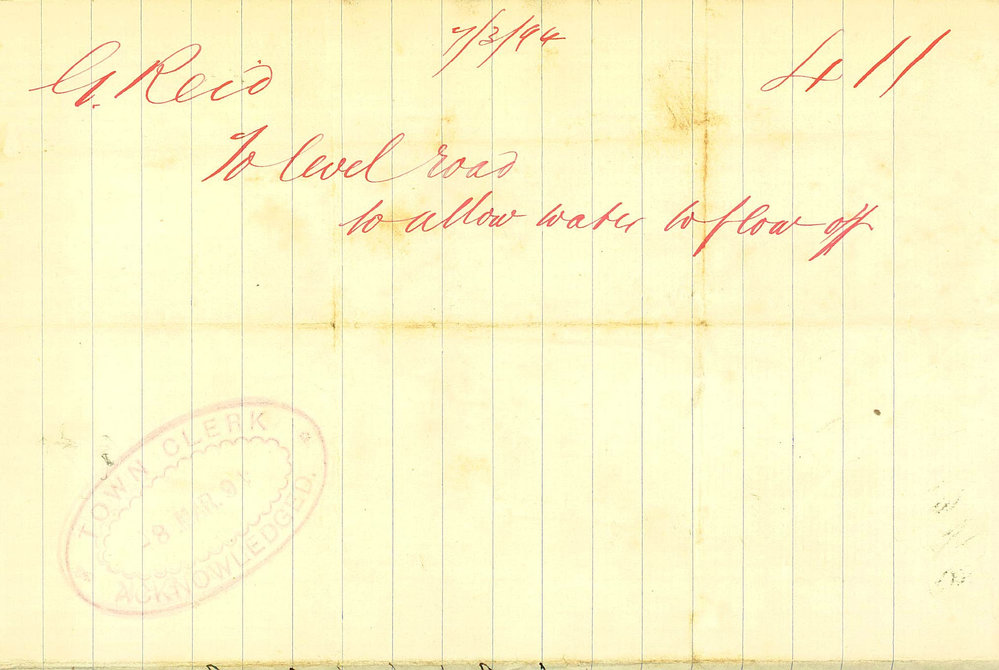 7/3/94
G. Reid 411
To level road
to allow water to flow off
TOWN CLERK
-8 MAR. 9
ACKNOWLEDGED.